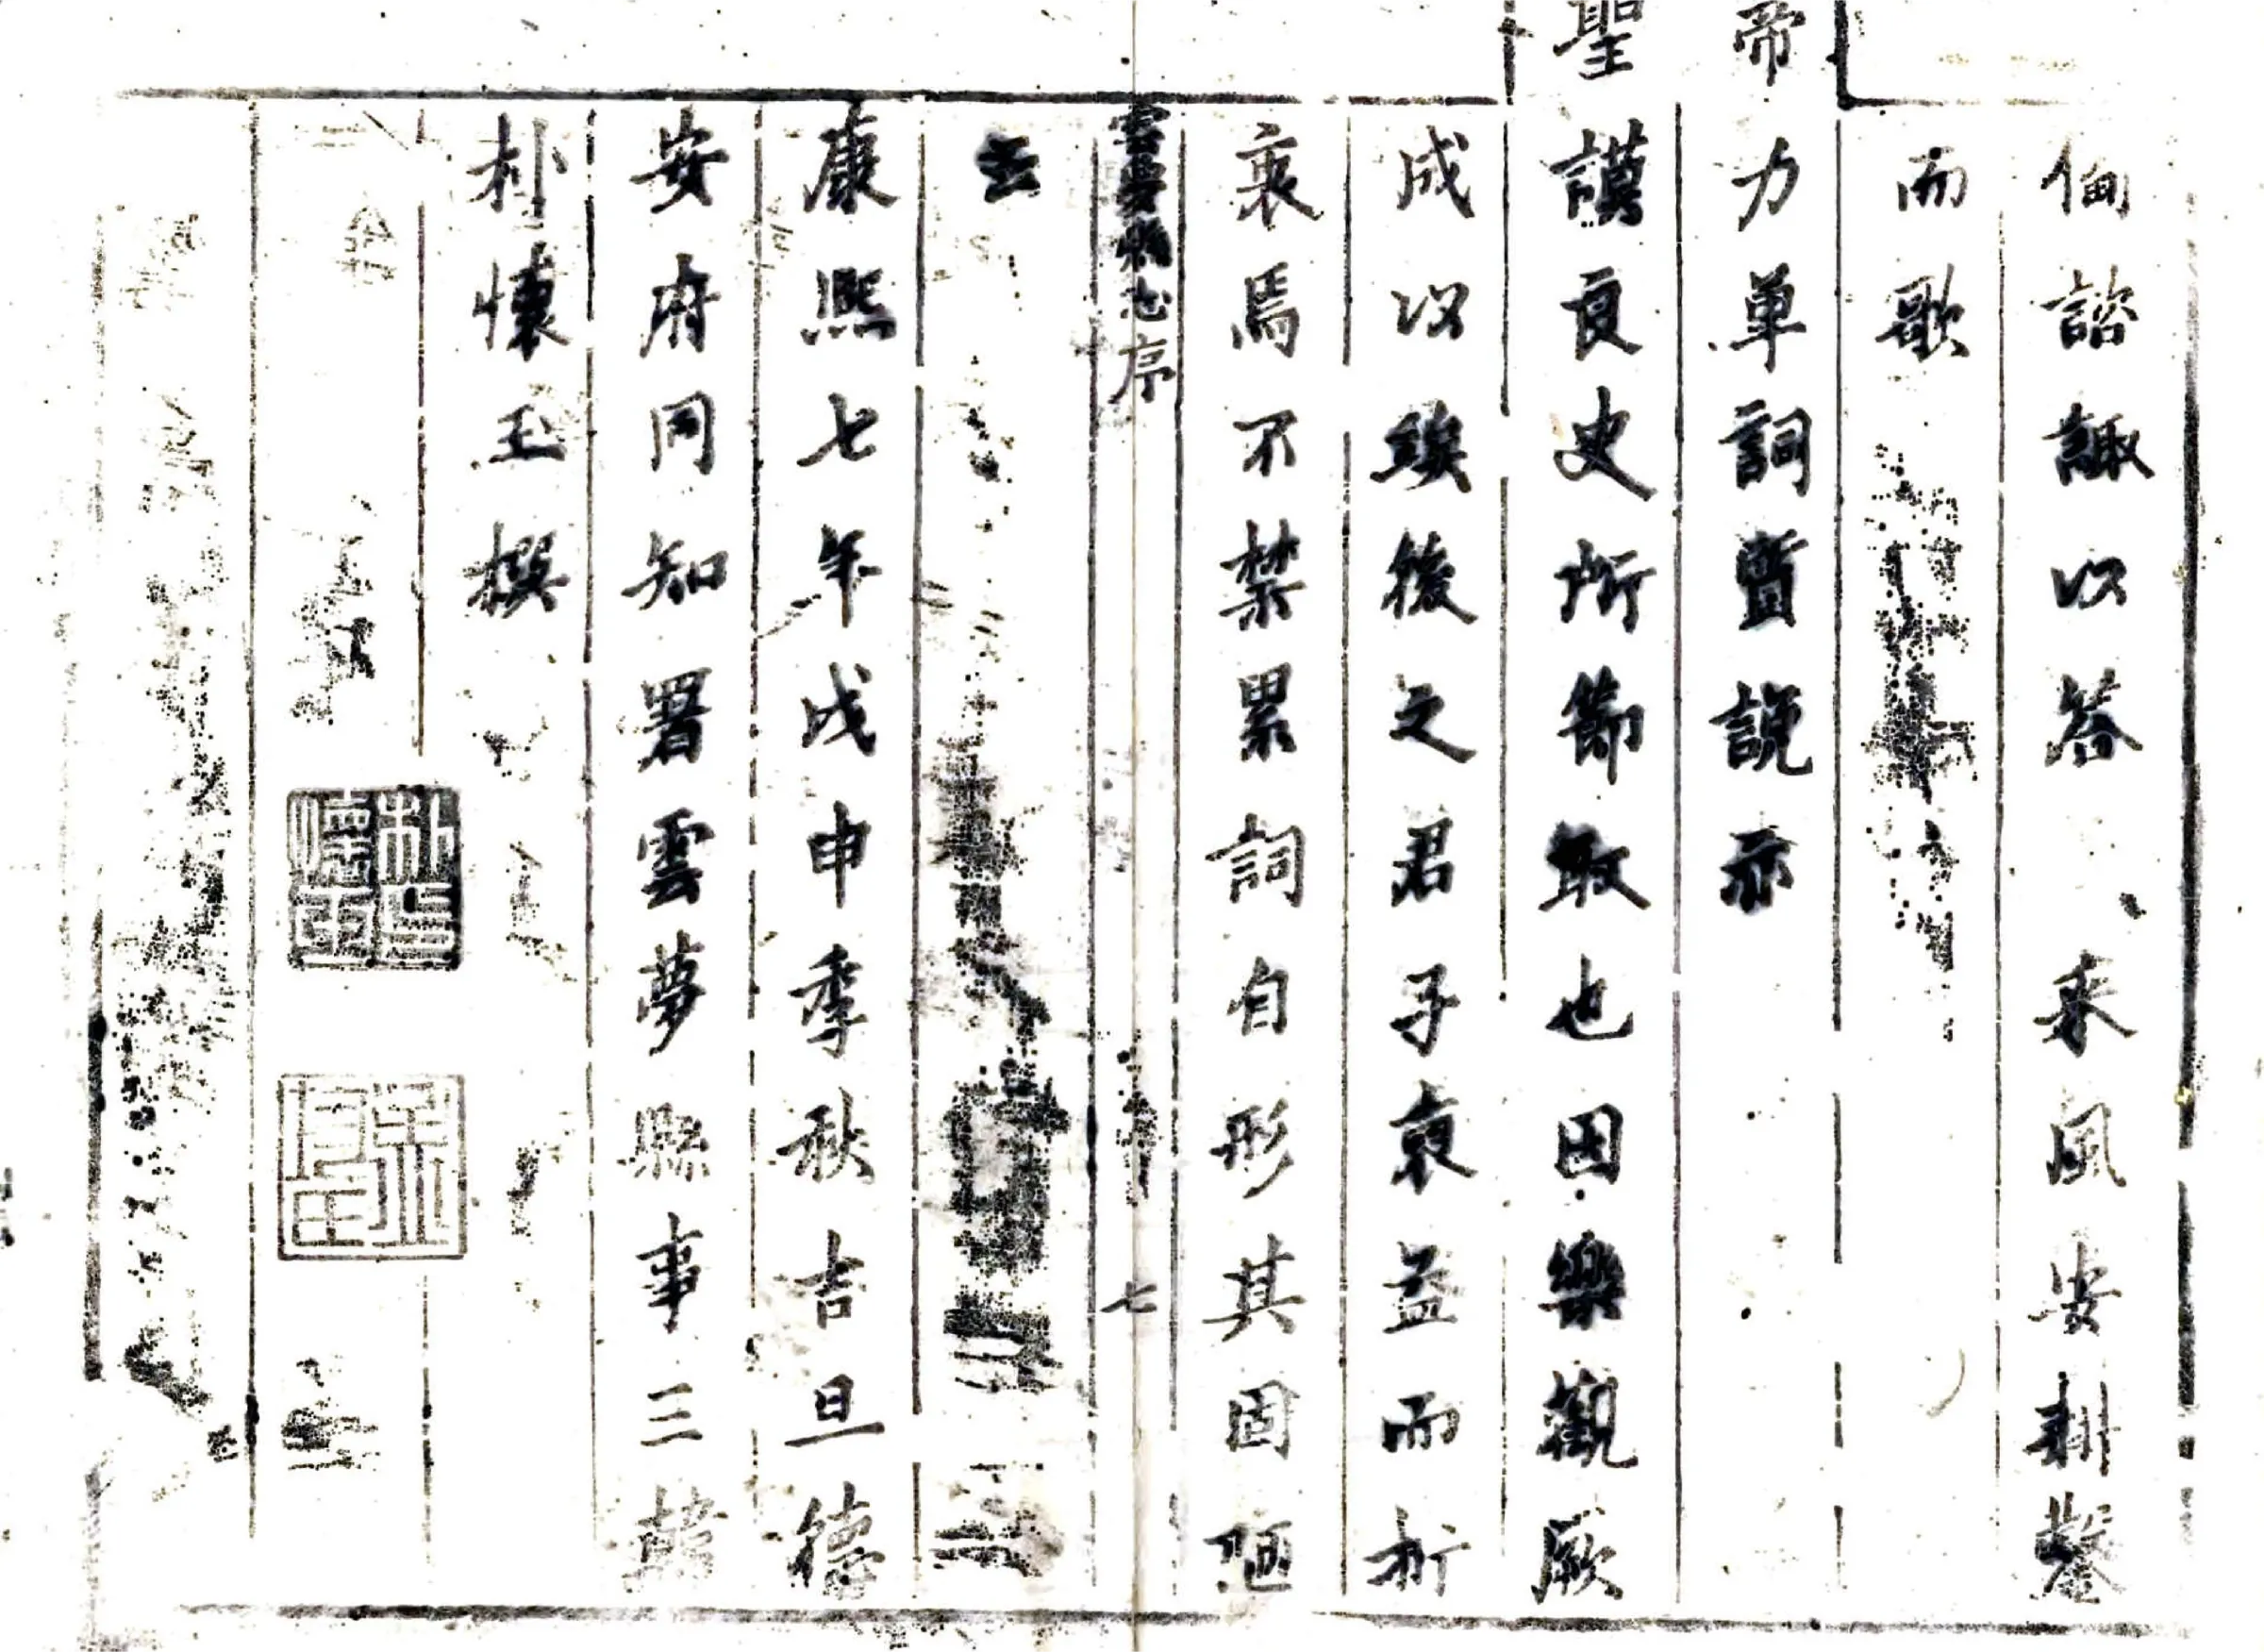 備諮諏以答采風安耕鑿
而歌
帝力單詞說亦
聖謨良史所節取也因樂觀厥
成以竢後之君子裒益而析
衷焉不禁累詞自形其固陋
雲夢縣志序 七
云
康熙七年戊申季秋吉旦德
安府同知署雲夢縣事三韓
朴懷玉撰
朴懷玉印